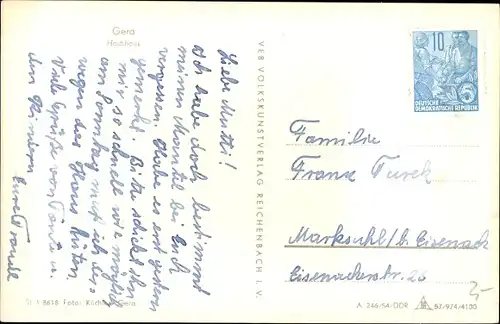 Gera
Hochhaus
Liebe Mutti!
Ich habe doch bestimmt
meinen Mantel bei Euch
vergessen. Habe es erst gestern
gemerkt. Bitte schickt ihn
mir so schnell wie möglich
am Sonntag muß ich des-
wegen das Haus hüten.
Viele Grüße von Tante u.
den Kleinen
Eure Traudl
VEB VOLKSKUNSTVERLAG REICHENBACH I. V.
10
DEUTSCHE
DEMOKRATISCHE REPUBLIK
5
Familie
Franz Turck
Marksuhl/b. Eisenach
Eisenacherstr. 26
5,-
Gera
A 246/54-DDR 57/974/4100